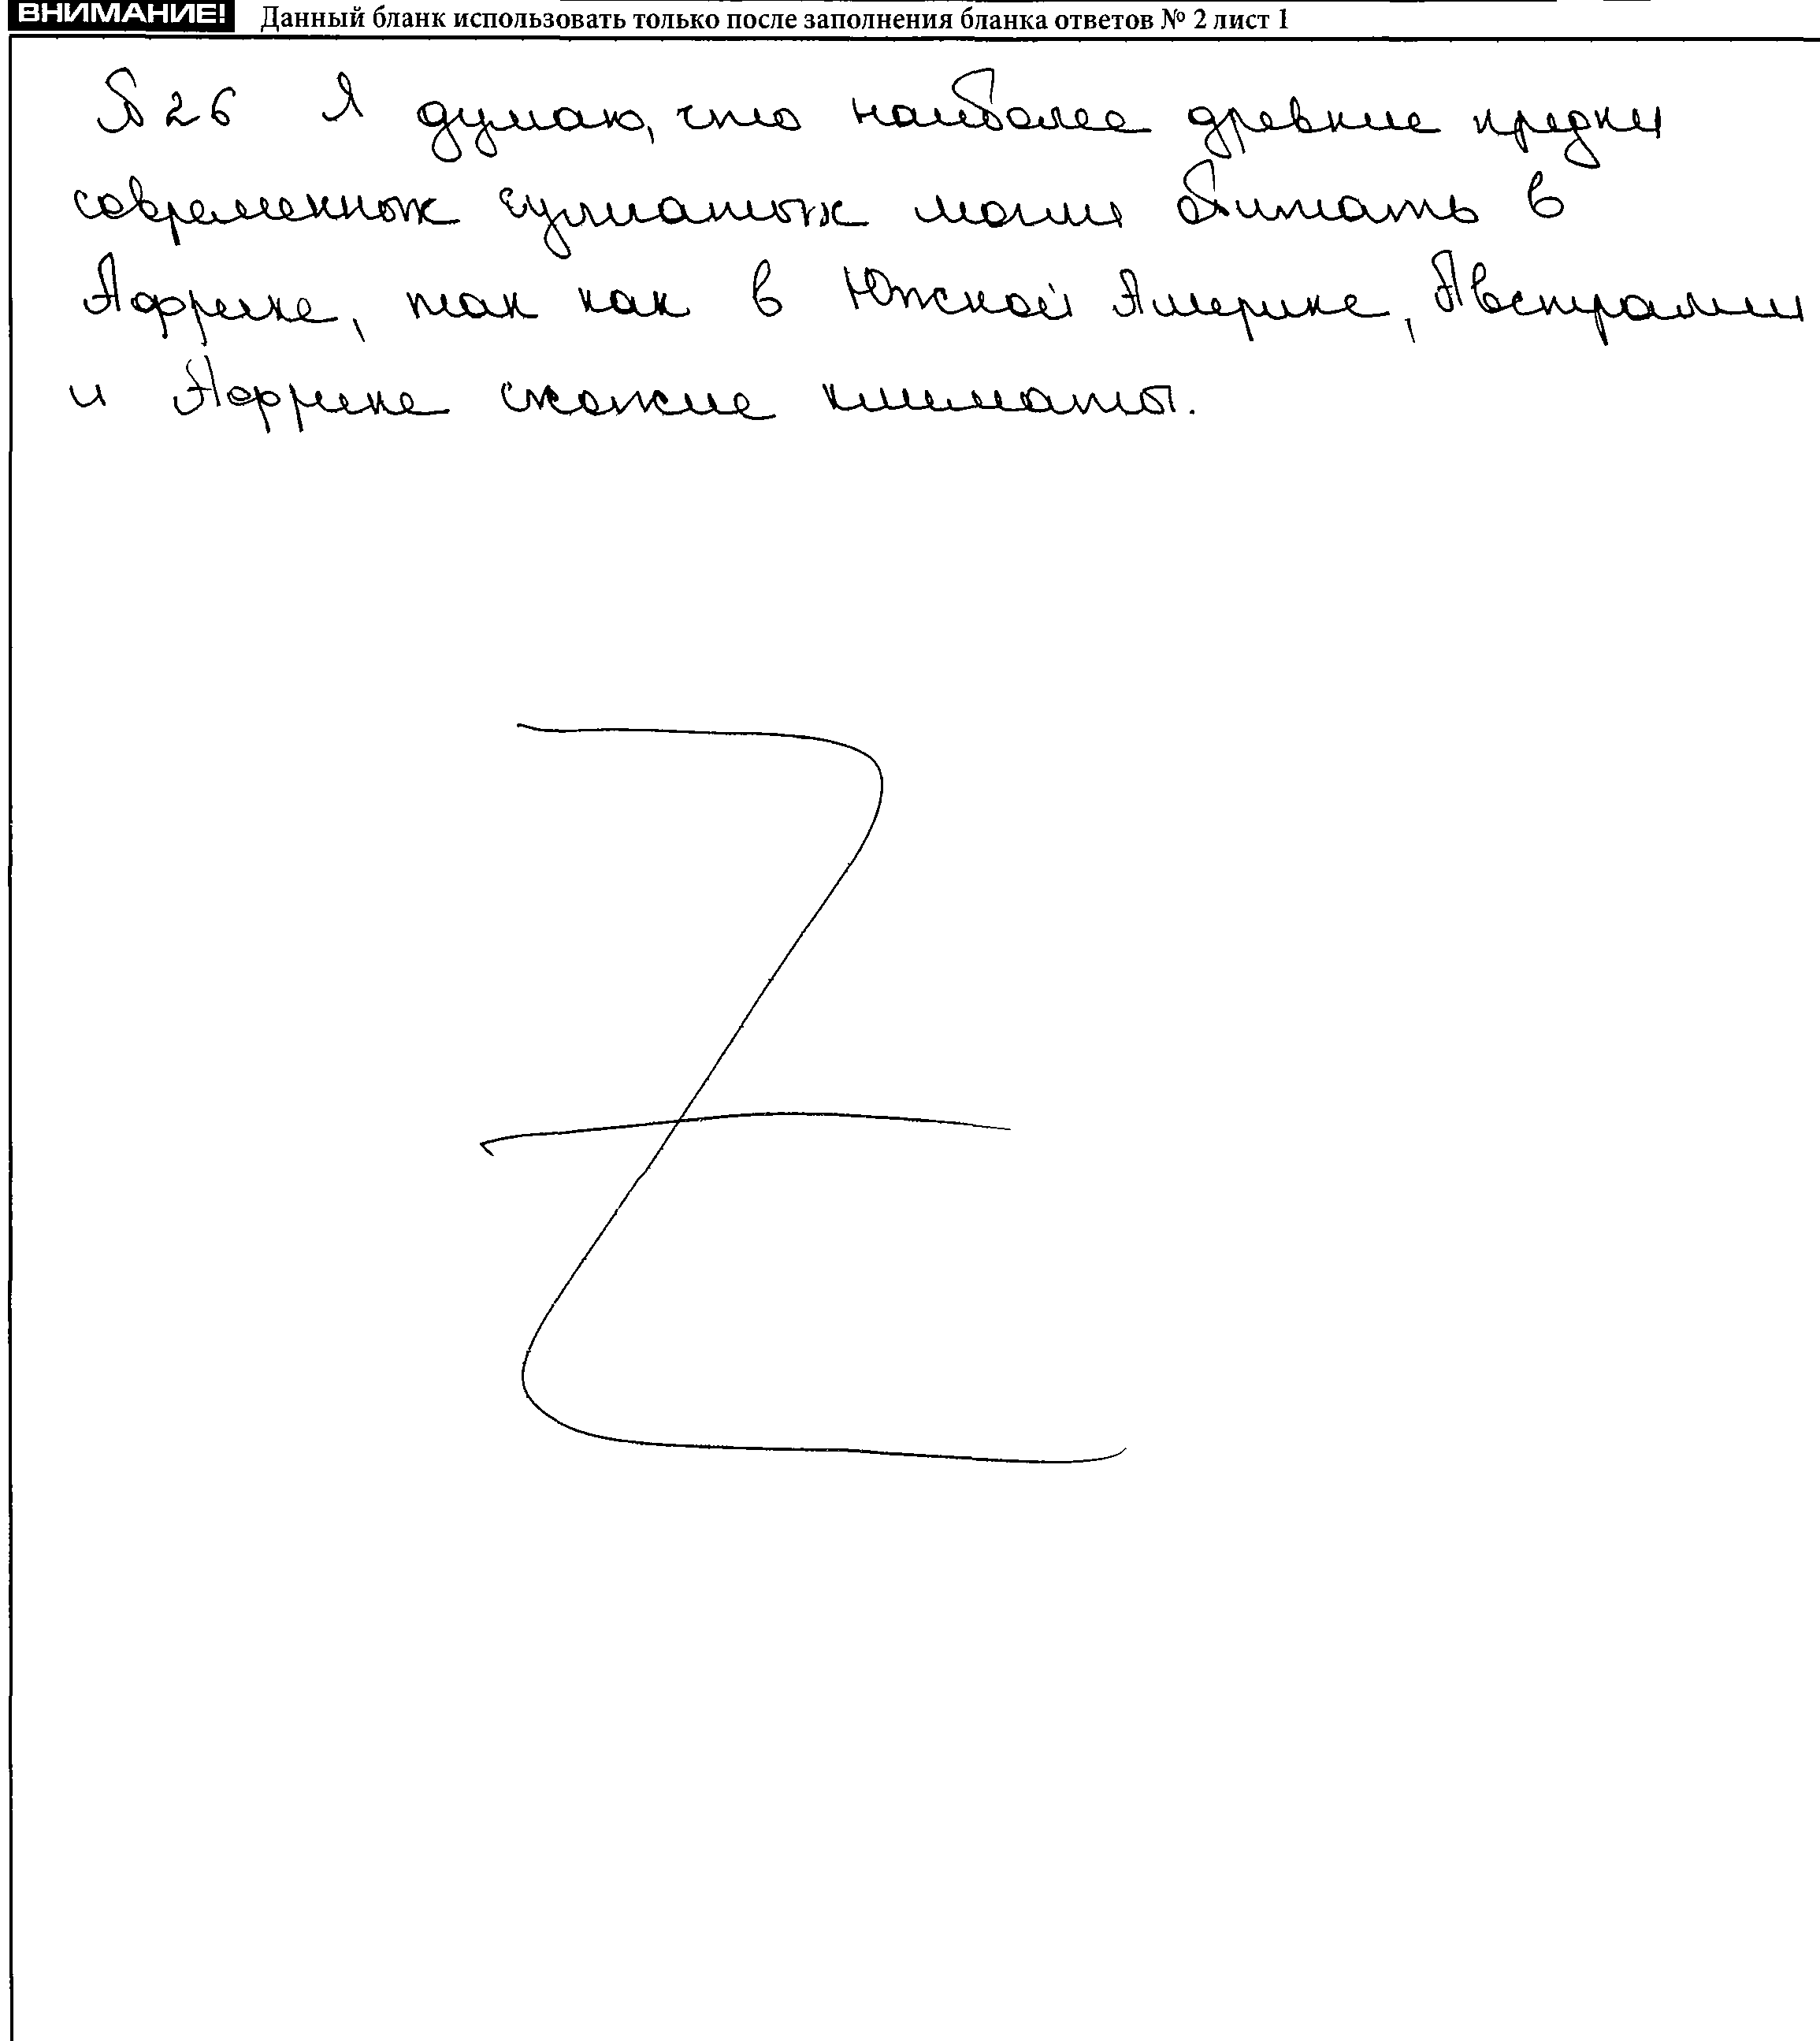 ВНИМАНИЕ! Данный бланк использовать только после заполнения бланка ответов № 2 лист 1
№ 26 Я думаю, что наиболее древние предки
современных сумчатых могли обитать в
Африке, так как в Южной Америке, Австралии
и Африке схожие климаты.
Z